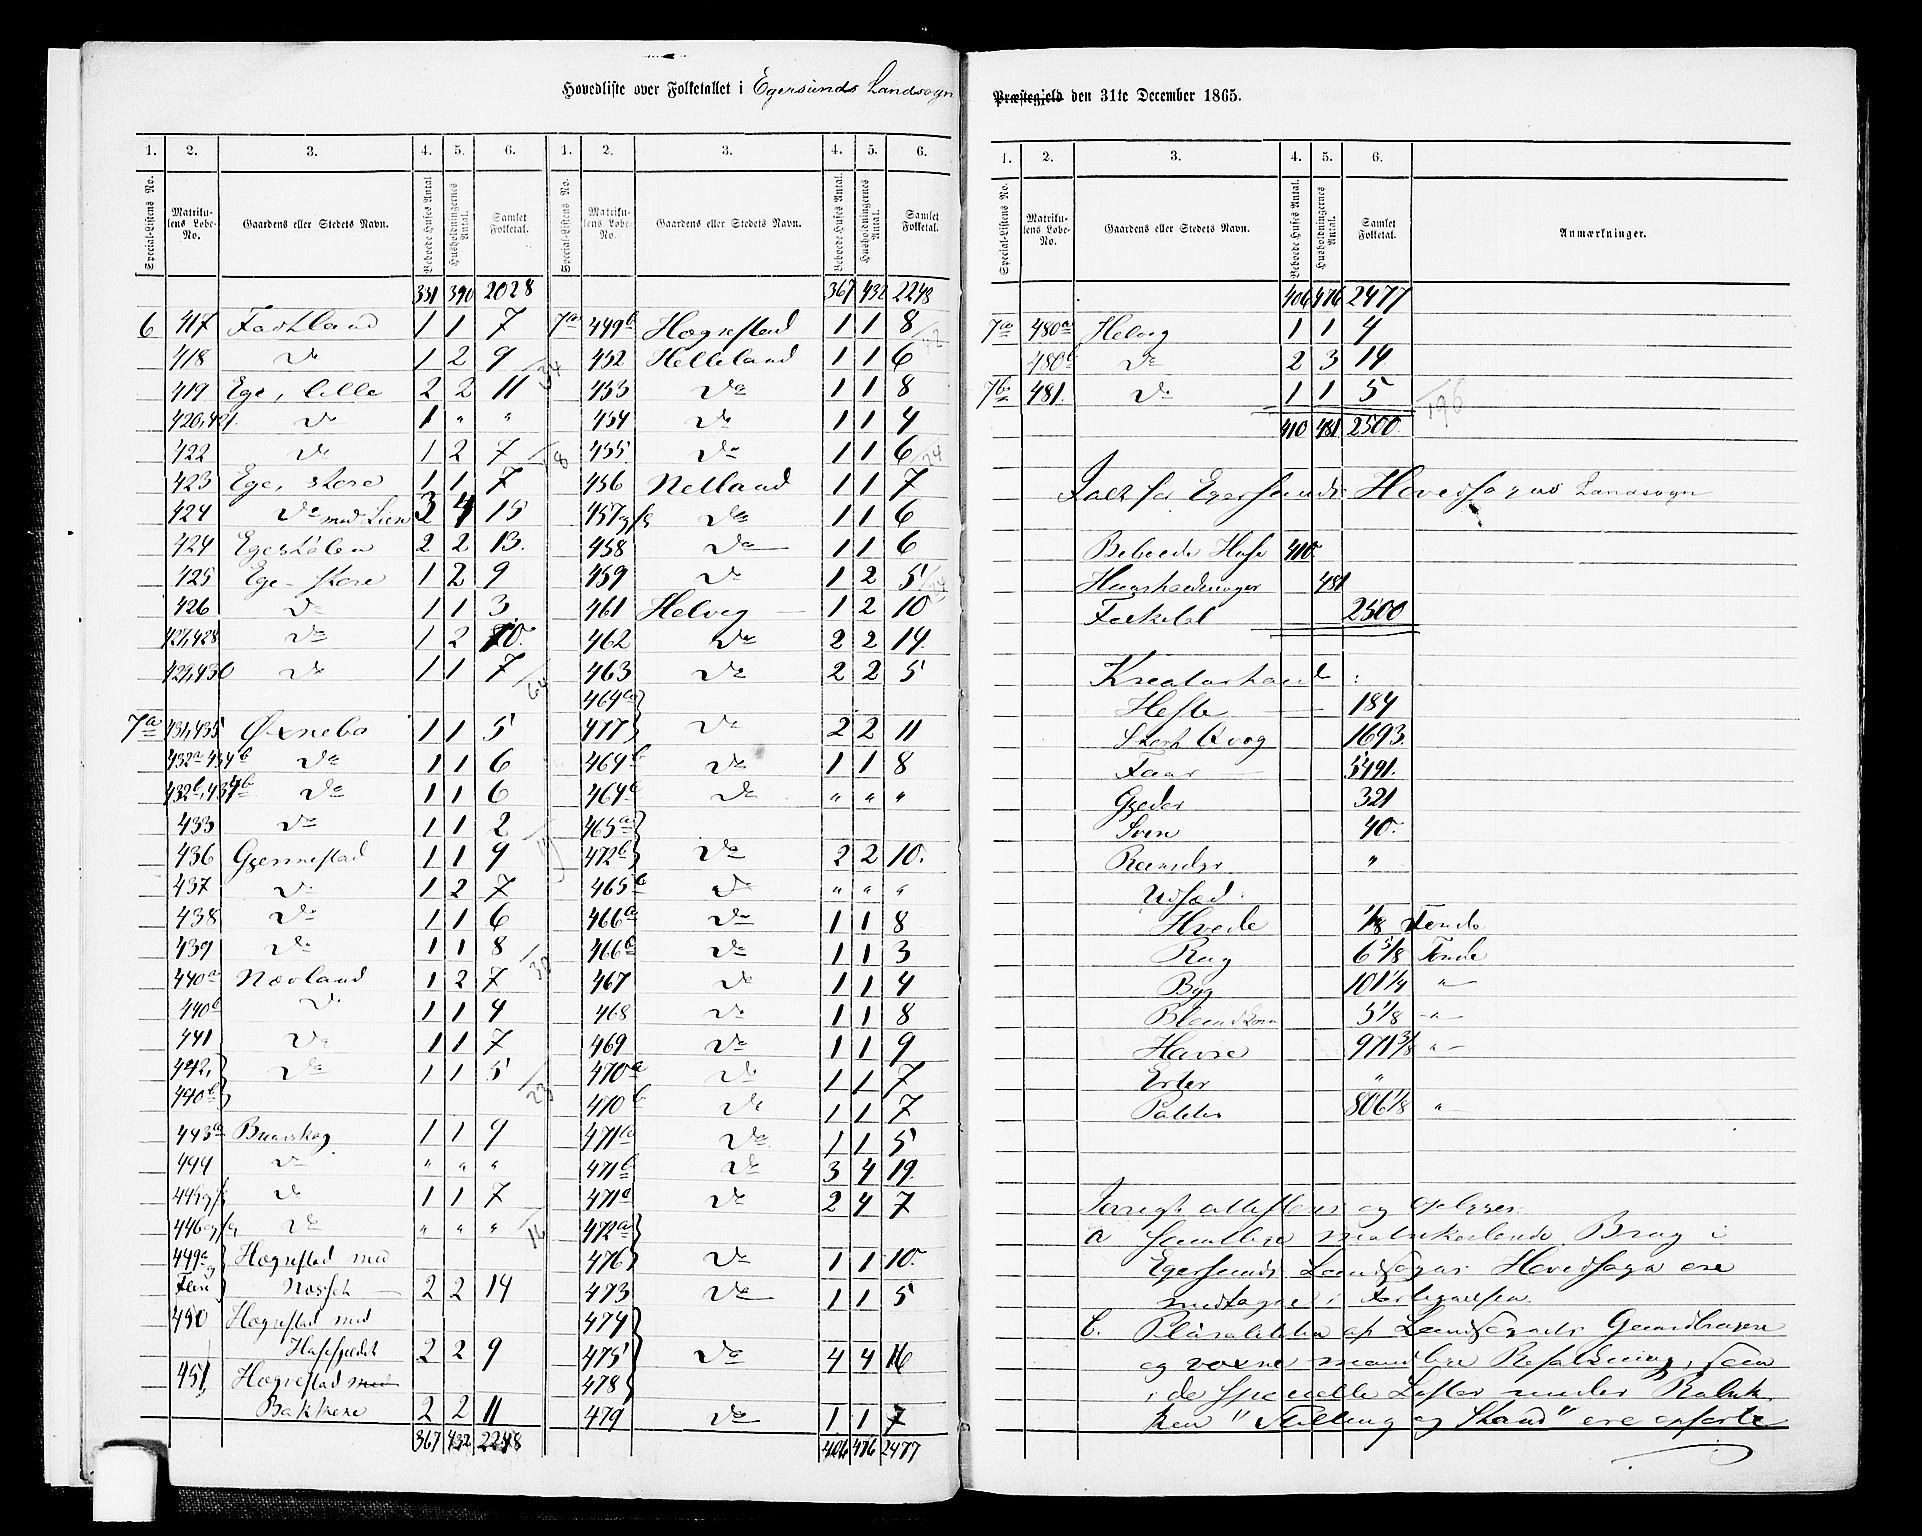 Hovedliste over Folketallet i Egersunds Landsogn
1. 2. 3. 4. 5. 6. 1. 2. 3. 4. 5. 6.
Special-Listens No. Matrikulens Løbe-No. Gaardens eller Stedets Navn. Beboede Huses Antal Husholdningernes Antal. Samlet Folketal. Special-Listens No. Matrikulens Løbe-No. Gaardens eller Stedets Navn. Beboede Huses Antal. Husholdningernes Antal. Samlet Folketal.
331 390 2028
6 417 1 1 7
418 Do 1 2 9
34
419 Ege, lille 2 2 11
420,421 Do 1 " "
422 Do 1 2 7
18
423 Ege, store 1 1 7
424 Do med Lien 3 4 15
424 Egestølen 2 2 13.
425 Ege store 1 2 9
426 Do 1 1 3
427,428 Do 1 2 10.
429,430 Do 1 1 7
64
7a 431,435 Øxnebo 1 1 5
432a 434b Do 1 1 6
432b, 434b Do 1 1 6
433 Do 1 1 2
19
436 Gjermestad 1 1 9
437 Do 1 2 7
438 Do 1 1 6
439 Do 1 1 8
30
440a Nævland 1 2 7
440b Do 1 1 4
441 Do 1 1 7
442, Do 1 1 5
440b
23
443a Buarskog 1 1 9
444 Do " " "
445 Do 1 1 7
446 Do " " "
16
449a Høgrestad med
2 2 14
450 Høgrestad med
2 2 9
451, Høgrestad med
Bakkene 2 2 11
367 432 2248
367 432 2248
7a 449b Høgrestad 1 1 8
42
452 Helleland 1 1 6
453 Do 1 1 8
454 Do 1 1 4
455 Do 1 1 6
24
456 Netland 1 1 7
457 Do 1 1 6
458 Do 1 1 6
459 Do 1 2 5
24
461 Helvig 1 2 10
462 Do 2 2 14
463 Do 2 2 5
464a
477 Do 2 2 11
464b Do 1 1 8
464c Do " " "
465a
472b Do 2 2 10.
465b Do " " "
466a Do 1 1 8
466b Do 1 1 3
467 Do 1 1 4
468 Do 1 1 8
469 Do 1 1 9
470a Do 1 1 7
470b Do 1 1 7
471a Do 1 1 5
471b Do 3 4 19.
471c Do 2 4 7
472a
476 Do 1 1 10.
473 Do 1 1 5
474
475 Do 4 4 16
478
479 Do 1 1 7
406 476 2477
Præstegjeld den 31te December 1865.
1. 2. 3. 4. 5. 6.
Special-Listens No. Matrikulens Løbe-No. Gaardens eller Stedets Navn. Beboede Huses Antal. Husholdningernes Antal. Samlet Folketal. Anmærkninger.
406 476 2477
7a 480a Helvig 1 1 4
480b Do 2 3 14
7b 481. Do 1 1 5
196
410 481 2500
Ialt for Egersunds Hovedsogns Landsogn
Beboede Huse 410
Huusholdninger 481
Folketal 2500
Kreaturhold :
Heste 184
Stort Qvæg 1693.
Faar 5491.
Gjeder 321
Sviin 40.
Reensdyr "
Udsæd :
Hvede 1/8 Tønde
Rug 6 5/8 Tønde
Byg 101 1/4 "
Blandkorn 5 1/8 "
Havre 971 3/8 "
Erter "
Poteter 806 1/8 "
Forøvrigt attesteres og oplyses:
a samtlige matrikulerede Brug i
Egersunds Landsogns Hovedsogn ere
medtagne i Fortegnelsen.
b. Pluraliteten af Landsognets Gaardbrugere
og voxne mandlige Befolkning, som
i de specielle Lister under Rubrik-
ken "Stilling og Stand" ere opførte